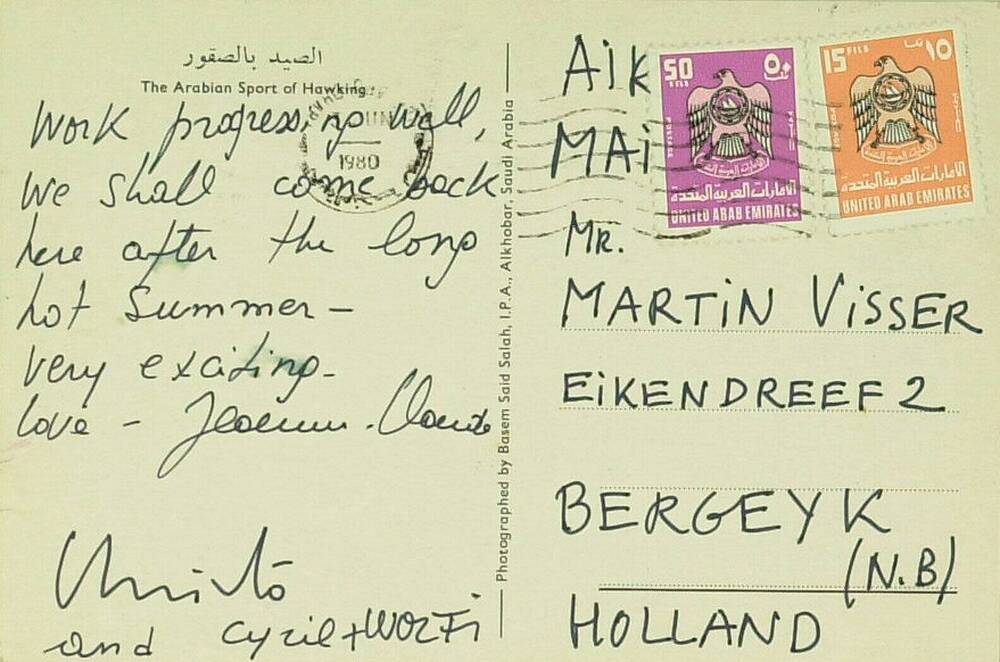 الصيد بالصقور
The Arabian Sport of Hawking
Work progressing well,
we shall come back
here after the long
hot summer -
very exciting -
love - Jeanne-Claude
Christo
and Cyril + WOLFi
JUN
1980
Photographed by Basem Said Salah, I.P.A., Alkhobar, Saudi Arabia
AiR
MAi
50 FILS
٥٠ فلس
POSTAGE
الامارات العربية المتحدة
UNITED ARAB EMIRATES
15 FILS
١٥ فلس
POSTAGE
الامارات العربية المتحدة
UNITED ARAB EMIRATES
MR.
MARTiN ViSSER
EiKENDREEF 2
BERGEYK
(N.B)
HOLLAND